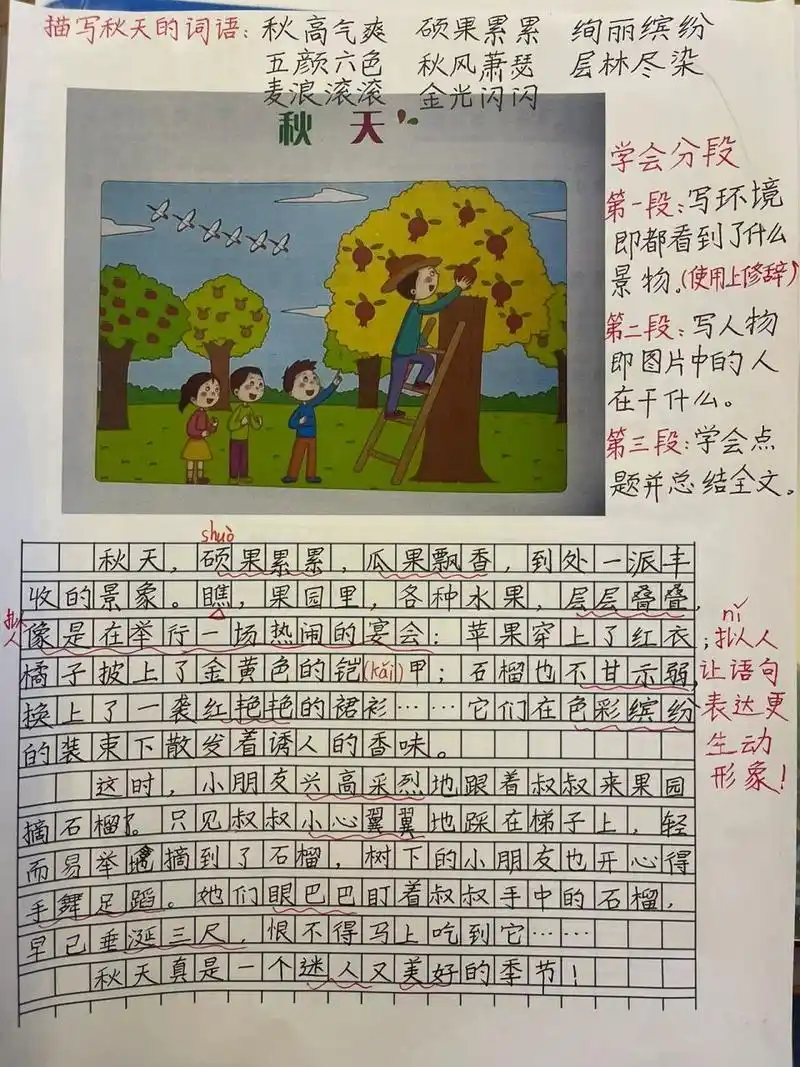 描写秋天的词语：秋高气爽 硕果累累 绚丽缤纷
五颜六色 秋风萧瑟 层林尽染
麦浪滚滚 金光闪闪
秋 天
学会分段
第一段：写环境
即都看到了什么
景物。(使用上修辞)
第二段：写人物
即图片中的人
在干什么。
第三段：学会点
题并总结全文。
shuò
秋天，硕果累累，瓜果飘香，到处一派丰
收的景象。瞧，果园里，各种水果，层层叠叠，
像是在举行一场热闹的宴会：苹果穿上了红衣；
橘子披上了金黄色的铠(kǎi)甲；石榴也不甘示弱，
换上了一袭红艳艳的裙衫……它们在色彩缤纷
的装束下散发着诱人的香味。
这时，小朋友兴高采烈地跟着叔叔来果园
摘石榴了。只见叔叔小心翼翼地踩在梯子上，轻
而易举地摘到了石榴，树下的小朋友也开心得
手舞足蹈。她们眼巴巴盯着叔叔手中的石榴，
早已垂涎三尺，恨不得马上吃到它……
秋天真是一个迷人又美好的季节！
拟人
nǐ
拟人
让语句
表达更
生动
形象！